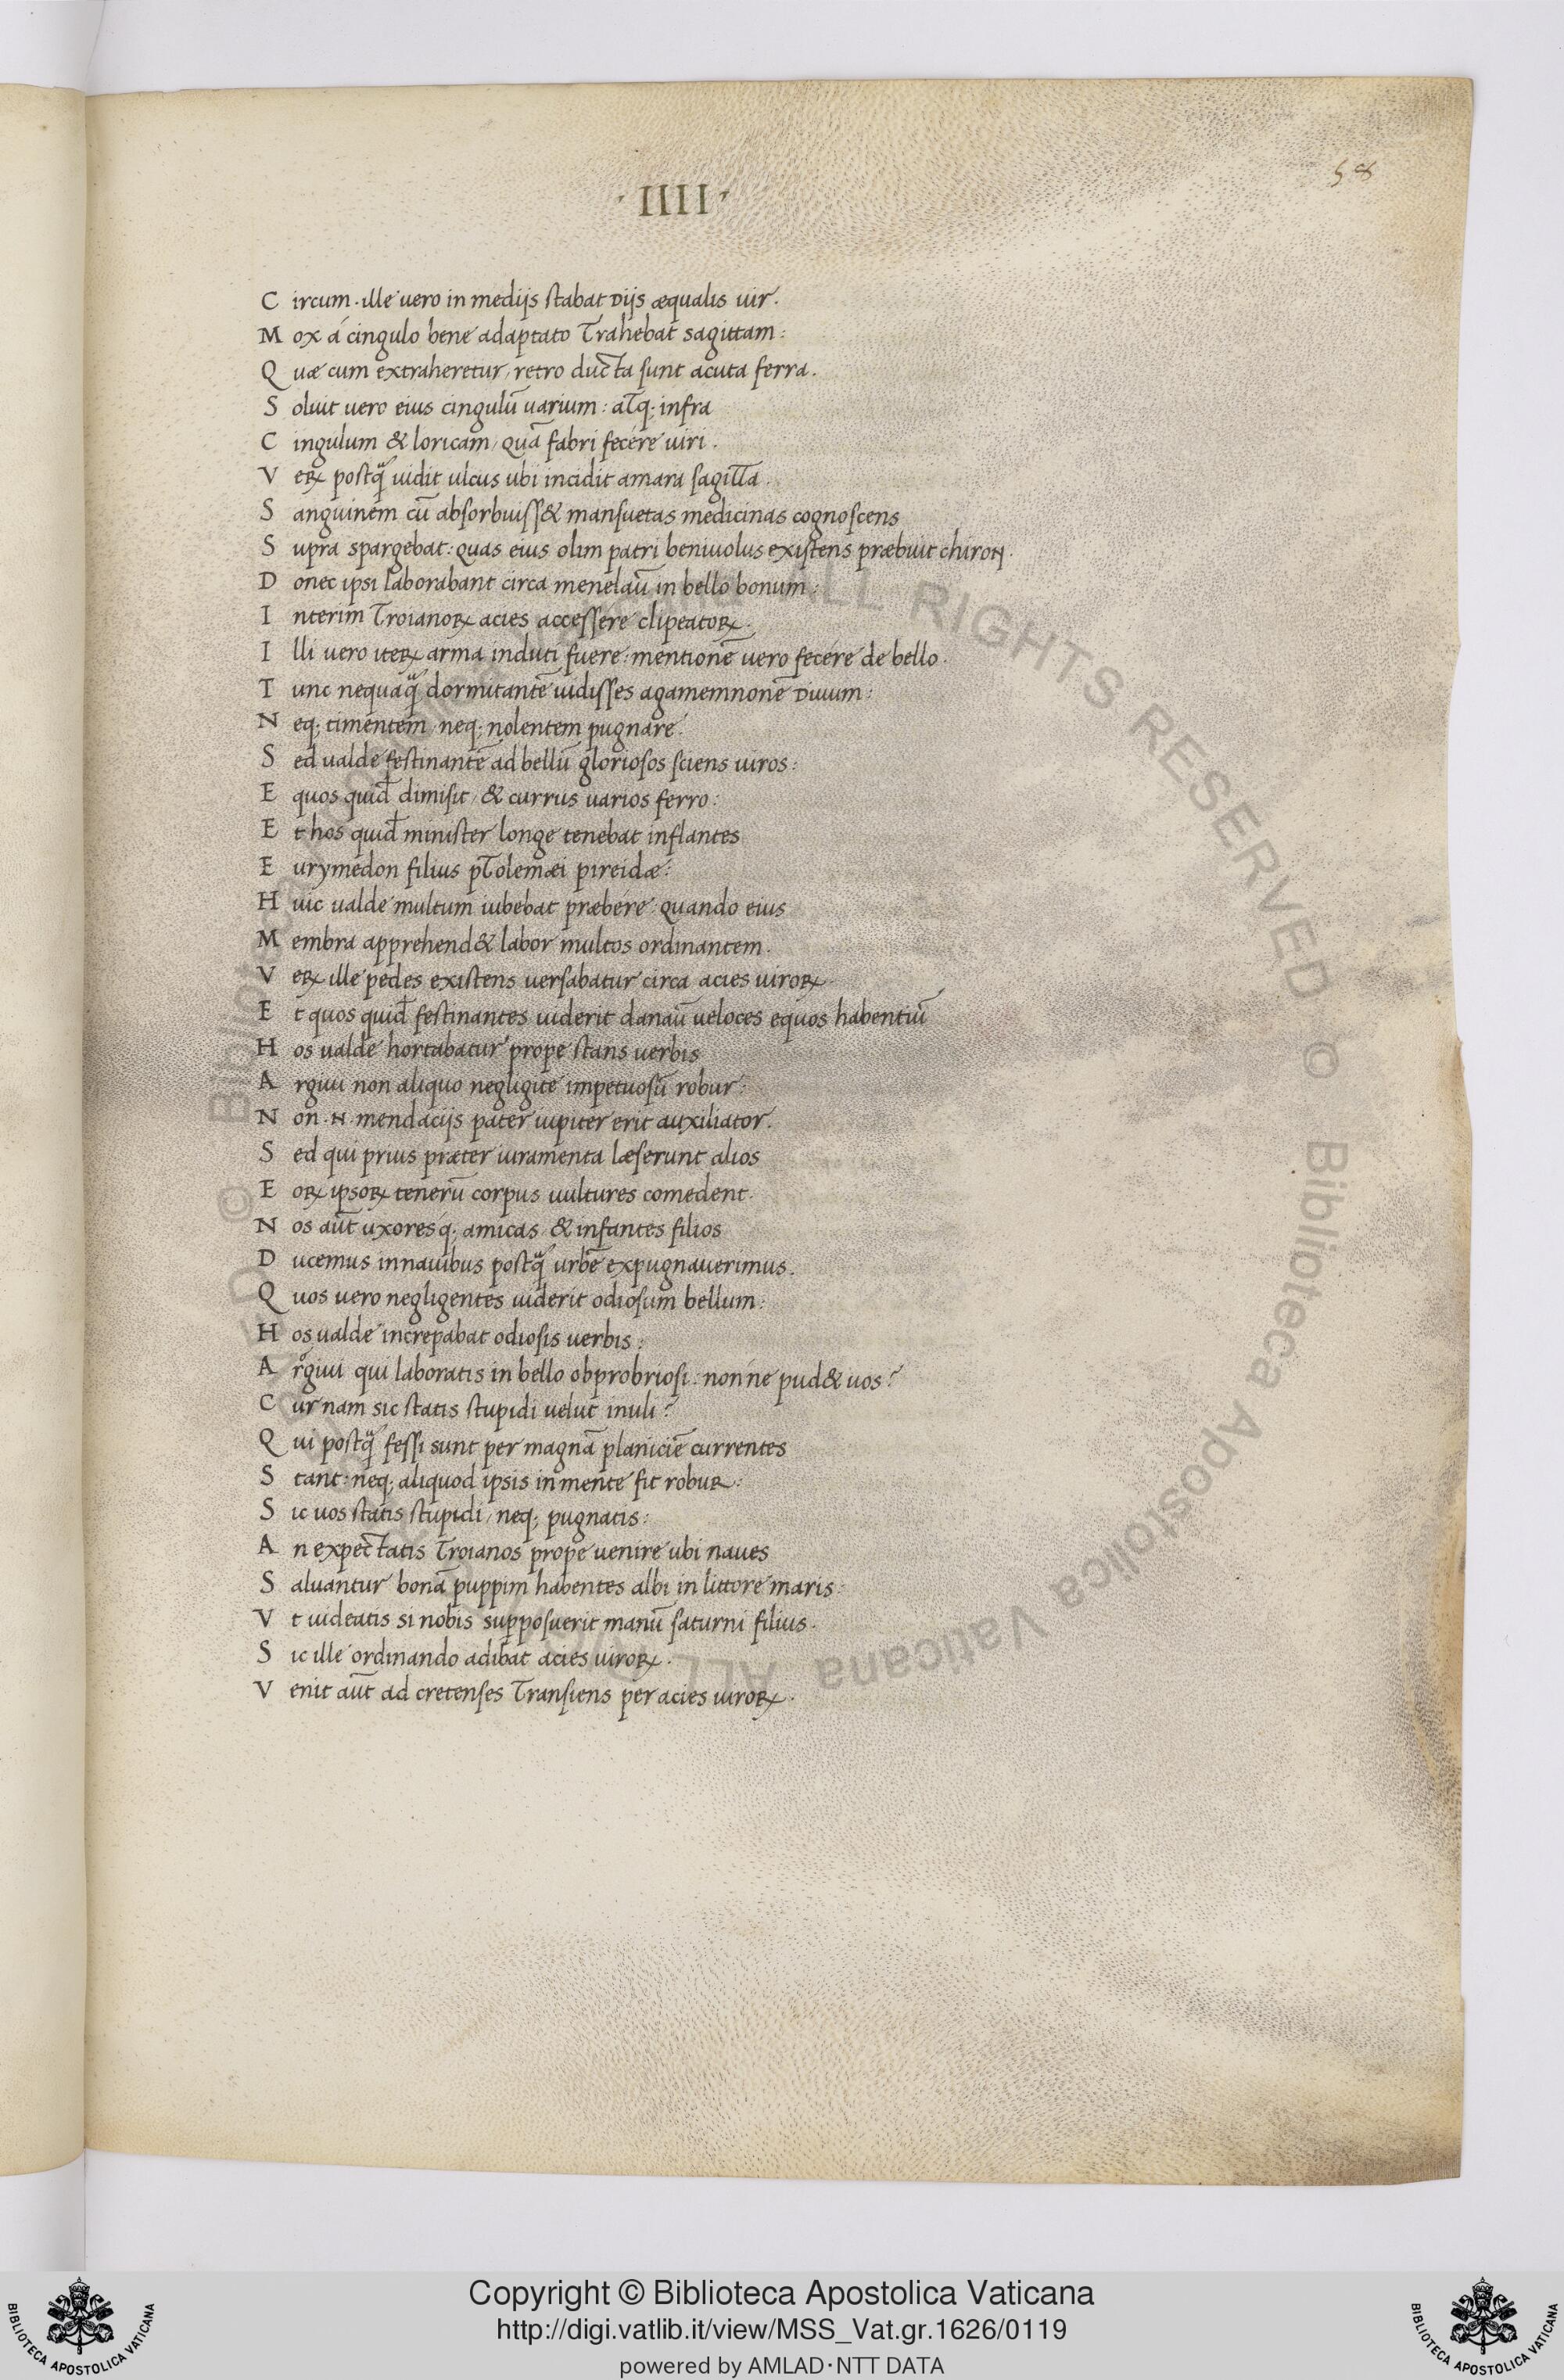 58
· IIII ·
C ircum · ille uero in medijs stabat Dijs æqualis uir ·
M ox á cingulo bene adaptato Trahebat sagittam :
Q uæ cum extraheretur, retro ducta sunt acuta ferra .
S oluit uero eius cingulū uarium : atq; infra
C ingulum & loricam, quā fabri fecére uiri .
V eꝝ postq̃ uidit ulcus ubi incidit amara sagitta .
S anguinem cū absorbuiss& mansuetas medicinas cognoscens
S upra spargebat : quas eius olim patri beniuolus existens præbuit chiron .
D onec ipsi laborabant circa menelaū in bello bonum :
I nterim Troianoꝝ acies accessere clipeatoꝝ .
I lli uero iteꝝ arma induti fuere : mentionē uero fecére de bello .
T unc nequaq̃ dormitantē uidisses agamemnonē Diuum :
N eq; timentem, neq; nolentem pugnare .
S ed ualde festinantē ad bellū gloriosos sciens uiros :
E quos quid̄ dimisit, & currus uarios ferro :
E t hos quid̄ minister longe tenebat inflantes
E urymedon filius pTolemæi pireidæ :
H uic ualde multum iubebat præbére quando eius
M embra apprehend& labor multos ordinantem .
V eꝝ ille pedes existens uersabatur circa acies uiroꝝ .
E t quos quid̄ festinantes uiderit danaū ueloces equos habentiū
H os ualde hortabatur prope stans uerbis
A rgiui non aliquo negligite impetuosū robur :
N on · N · mendacijs pater iupiter erit auxiliator .
S ed qui prius præter iuramenta læserunt alios
E oꝝ ipsoꝝ tenerū corpus uultures comedent .
N os aūt uxoresq; amicas & infantes filios
D ucemus in nauibus postq̃ urbē expugnauerimus .
Q uos uero negligentes uiderit odiosum bellum :
H os ualde increpabat odiosis uerbis :
A rgiui qui laboratis in bello obprobriosi : nonne pud& uos ?
C ur nam sic statis stupidi uelut inuli ?
Q ui postq̃ fessi sunt per magnā planiciē currentes
S tant : neq; aliquod ipsis in mente fit robur :
S ic uos statis stupidi, neq; pugnatis :
A n expectatis Troianos prope uenire ubi naues
S aluantur bonā puppim habentes albi in littore maris :
V t uideatis si nobis supposuerit manū saturni filius .
S ic ille ordinando adibat acies uiroꝝ .
V enit aūt ad cretenses Transiens per acies uiroꝝ .
© Biblioteca Apostolica Vaticana ALL RIGHTS RESERVED
Copyright © Biblioteca Apostolica Vaticana
http://digi.vatlib.it/view/MSS_Vat.gr.1626/0119
powered by AMLAD·NTT DATA
BIBLIOTECA APOSTOLICA VATICANA
BIBLIOTECA APOSTOLICA VATICANA